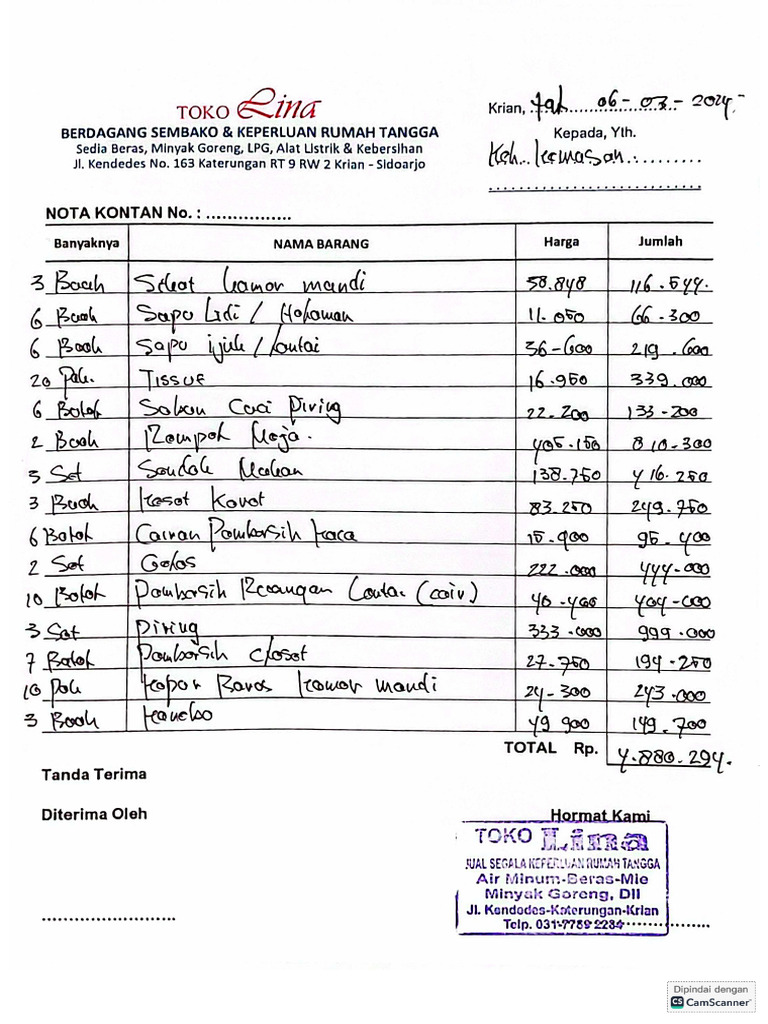 TOKO Lina
BERDAGANG SEMBAKO & KEPERLUAN RUMAH TANGGA
Sedia Beras, Minyak Goreng, LPG, Alat Listrik & Kebersihan
Jl. Kendedes No. 163 Katerungan RT 9 RW 2 Krian - Sidoarjo
Krian, 06-03-2024
Kepada, Yth.
Keh. Kemasan
NOTA KONTAN No. : ................
Banyaknya NAMA BARANG Harga Jumlah
3 Buah kamar mandi 58.848 116.544
6 Buah Sapu Lidi / Halaman 11.050 66-300
6 Buah Sapu ijuk / Lantai 36-600 219.600
20 Pak. Tissue 16.950 339.000
6 Botol Sabun Cuci Piring 22.200 133-200
2 Buah Meja. 405.150 810-300
3 Set Sendok Makan 138.750 416.250
3 Buah Keset Karet 83.250 249.750
6 Botol Cairan Pembersih Kaca 15.900 95.400
2 Set Gelas 222.000 444-000
10 Botol Pembersih Ruangan Lantai (cair) 40.400 404-000
3 Set Piring 333.000 999.000
7 Botol Pembersih Closet 27.750 194-250
10 Pak Kapur Barus Kamar mandi 24-300 243.000
3 Buah Kanebo 49 900 149.700
TOTAL Rp. 4.880.294.
Tanda Terima
Diterima Oleh
Hormat Kami
TOKO Lina
JUAL SEGALA KEPERLUAN RUMAH TANGGA
Air Minum-Beras-Mie
Minyak Goreng, Dll
Jl. Kendedes-Katerungan-Krian
Telp. 031-7789 2284
Dipindai dengan
CS CamScanner